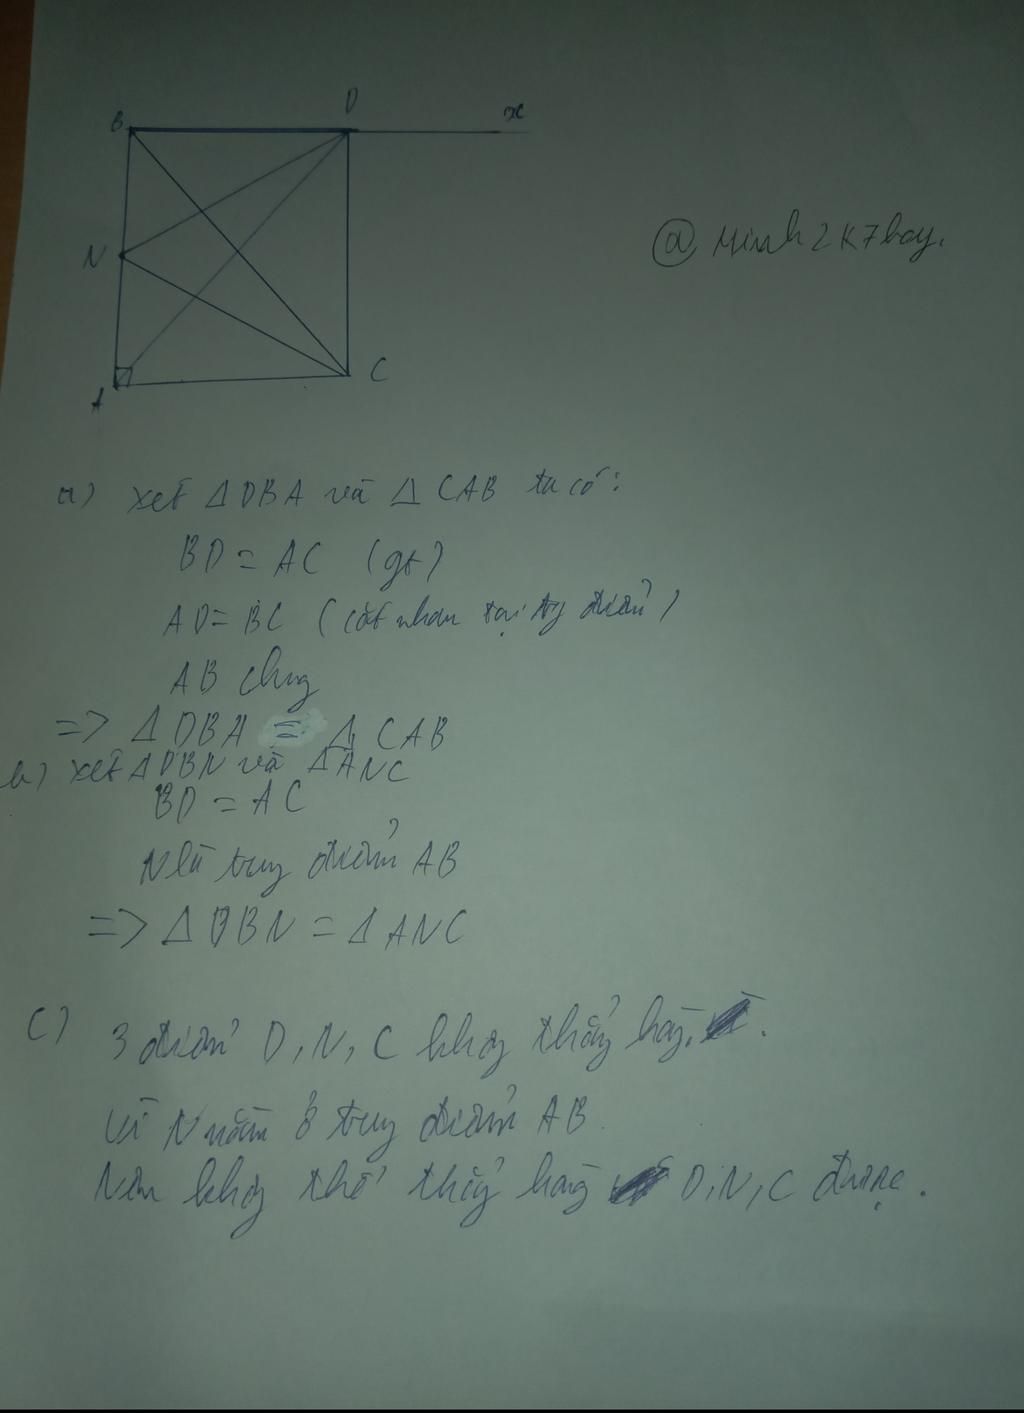 B D x
N
A C
@ Minh2k7hay.
a) xét Δ DBA và Δ CAB ta có:
BD = AC (gt)
AD = BC (cắt nhau tại tg điểm)
AB chug
=> Δ DBA = Δ CAB
b) xét Δ DBN và Δ ANC
BD = AC
N là trug điểm AB
=> Δ DBN = Δ ANC
c) 3 điểm D, N, C khôg thẳg hàg.
Vì N nằm ở trug điểm AB.
Nên khôg thể thẳg hàg D, N, C được.